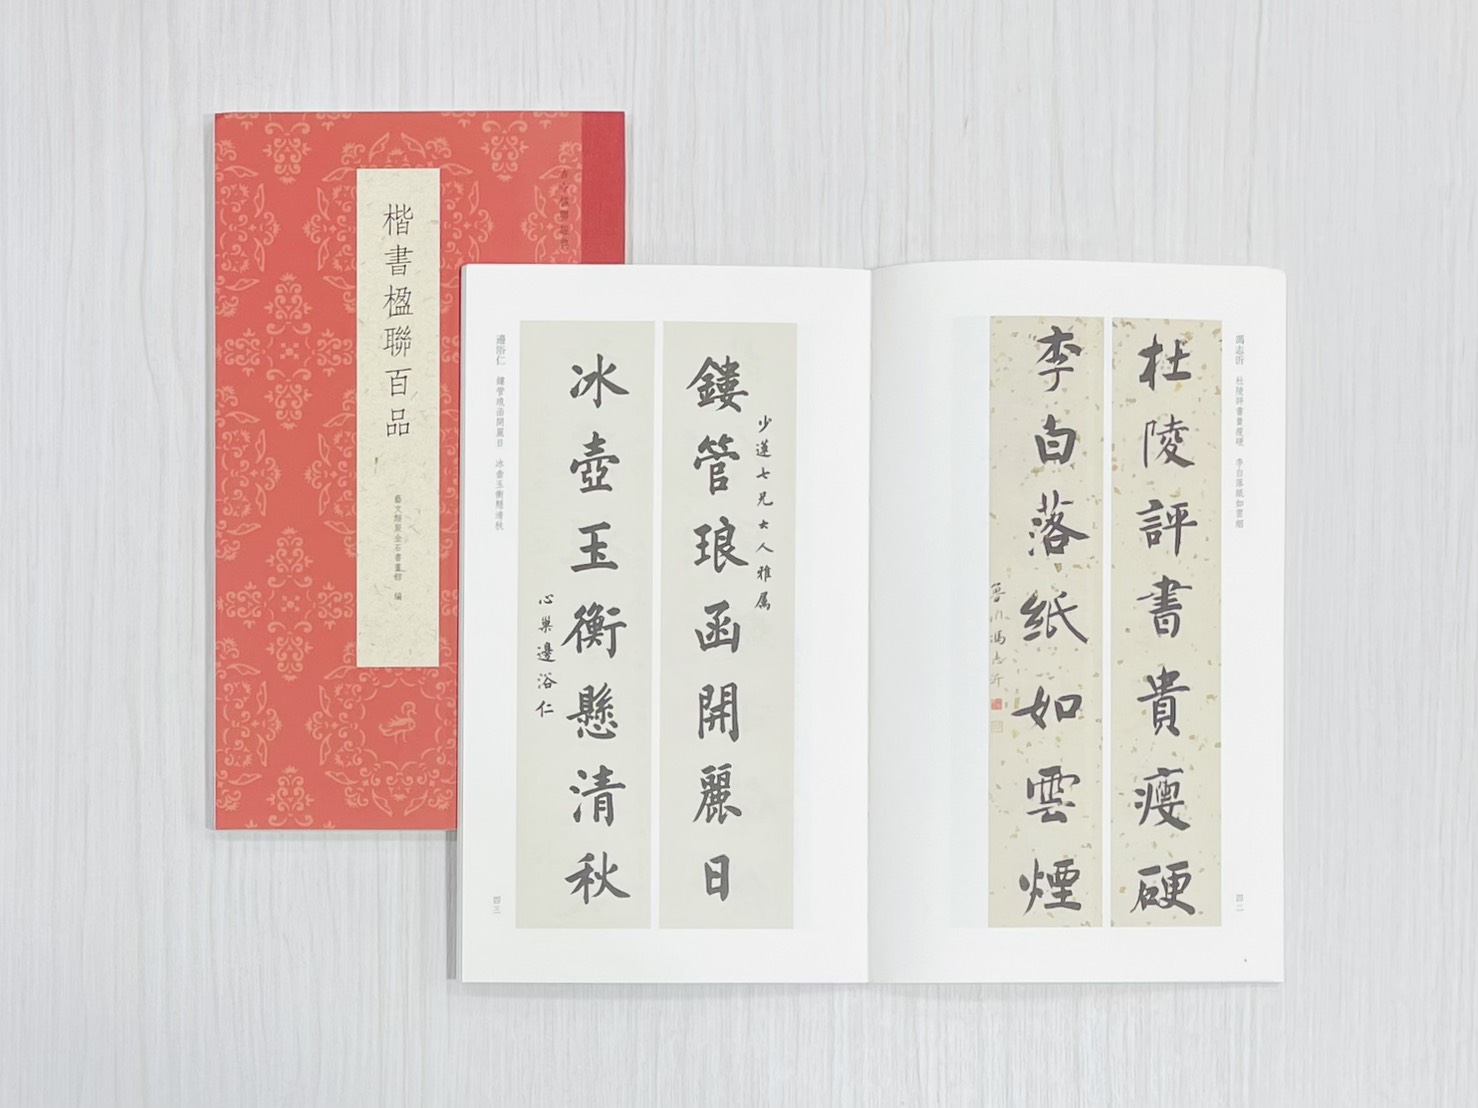 楷書楹聯百品
藝文類聚金石書畫館 編
馮志沂 杜陵評書貴瘦硬 李白落紙如雲煙
四二
杜陵評書貴瘦硬
李白落紙如雲煙
魯川馮志沂
少蓮七兄大人雅属
鏤管琅函開麗日
冰壺玉衡懸清秋
心巢邊浴仁
邊浴仁 鏤管琅函開麗日 冰壺玉衡懸清秋
四三